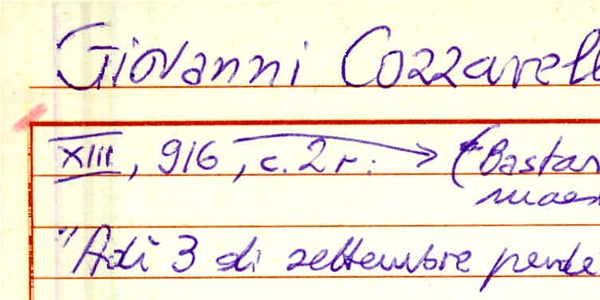 Giovanni Cozzarell
XIII, 916, c. 2 r. → (Bastar
maes
"Adì 3 di settembre pende